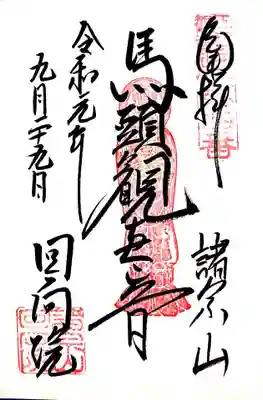 奉拝
諸宗山
馬頭観世音
令和元年
九月二十九日
回向院